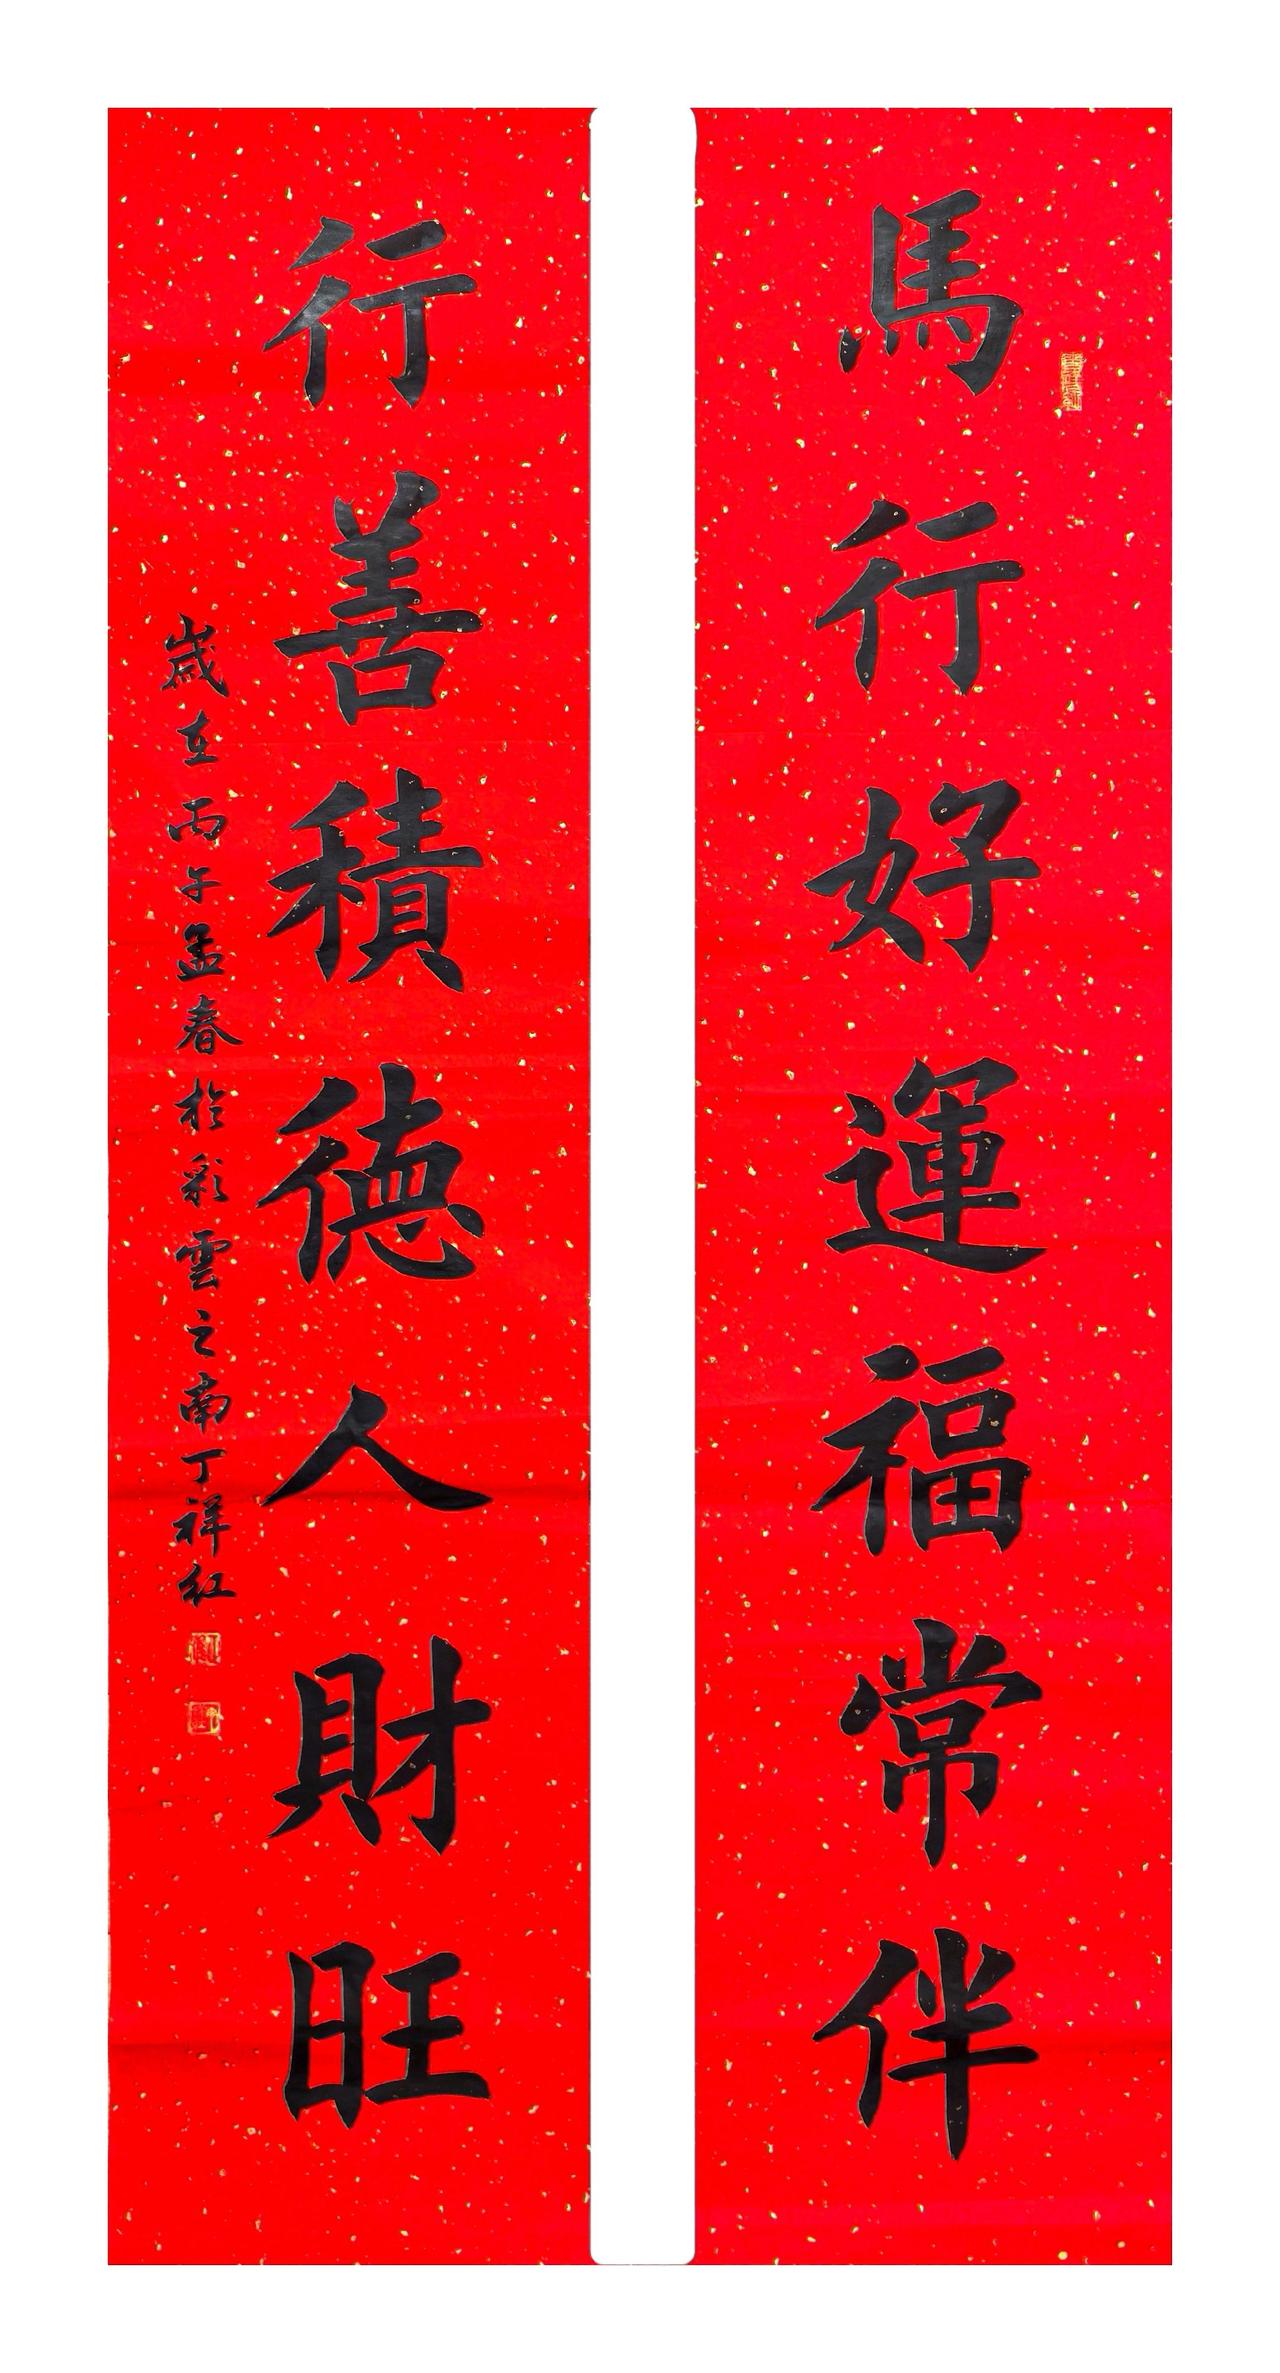 馬行好運福常伴
行善積德人財旺
歲在丙午孟春於彩雲之南丁祥红